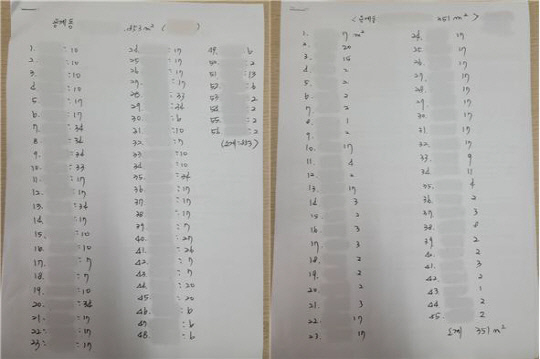 .853 m² (
1. : 10
2. : 10
3. : 10
4. : 10
5. : 17
6. : 17
7. : 34
8. : 34
9. : 34
10. : 33
11. : 17
12. : 17
13. : 34
14. : 17
15. : 10
16. : 10
17. : 7
18. : 7
19. : 10
20. : 34
21. : 17
22. : 17
23. : 17
24. : 17
25. : 17
26. : 17
27. : 17
28. : 33
29. : 34
30. : 6
31. : 10
32. : 7
33. : 10
34. : 10
35. : 34
36. : 17
37. : 17
38. : 17
39. : 17
40. : 27
41. : 26
42. : 7
43. : 7
44. : 20
45. : 20
46. : 6
47. : 6
48. : 6
49. : 6
50. : 2
51. : 13
52. : 6
53. : 2
54. : 2
55. : 2
56. : 2
351 m² >
1. 7 m²
2. 20
3. 15
4. 2
5. 2
6. 2
7. 2
8. 1
9. 2
10. 17
11. 4
12. 2
13. 17
14. 3
15. 2
16. 3
17. 3
18. 2
19. 2
20. 2
21. 3
22. 17
23. 17
24. 17
25. 17
26. 17
27. 17
28. 17
29. 17
30. 17
31. 17
32. 17
33. 9
34. 11
35. 4
36. 2
37. 3
38. 8
39. 2
40. 2
41. 3
42. 2
43. 1
44. 2
45. 2
소계 351 m²